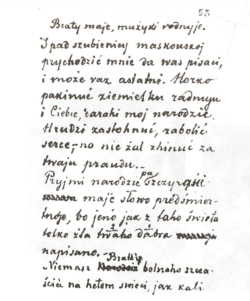 53
Braty maje, mużyki rodnyje.
I pad szubienicy maskouskoj
prychodzić mnie da was pisaci,
i może raz astatni. Horko
pakinuć ziemielku radnuju
i Ciebie, daraki moj narodzie.
Hrudzi zastohnuć, zabolić
serce, — no nie żal zhinuć za
twaju praudu.
Pryjmi narodzie pa szczyraści
maje słowo predśmiert-
noje, bo jeno jak z taho świeta
tolko dla twaho dabra
napisano.
Bratka
Niemasz bolszaho szcza-
ścia na hetom świeci, jak kali